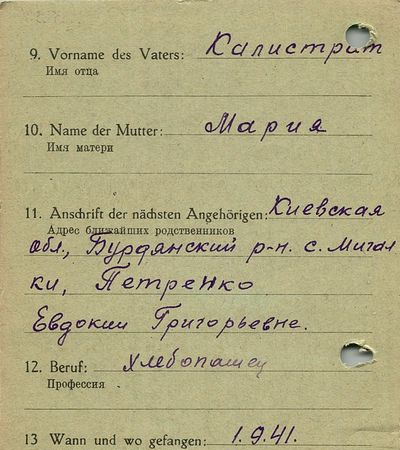 9. Vorname des Vaters: Калистрат
Имя отца
10. Name der Mutter: Мария
Имя матери
11. Anschrift der nächsten Angehörigen: Киевская
Адрес ближайших родственников
обл., Бурдянский р-н. с. Мигал
ки, Петренко
Евдокии Григорьевне.
12. Beruf: хлебопашец
Профессия
13 Wann und wo gefangen: 1.9.41.